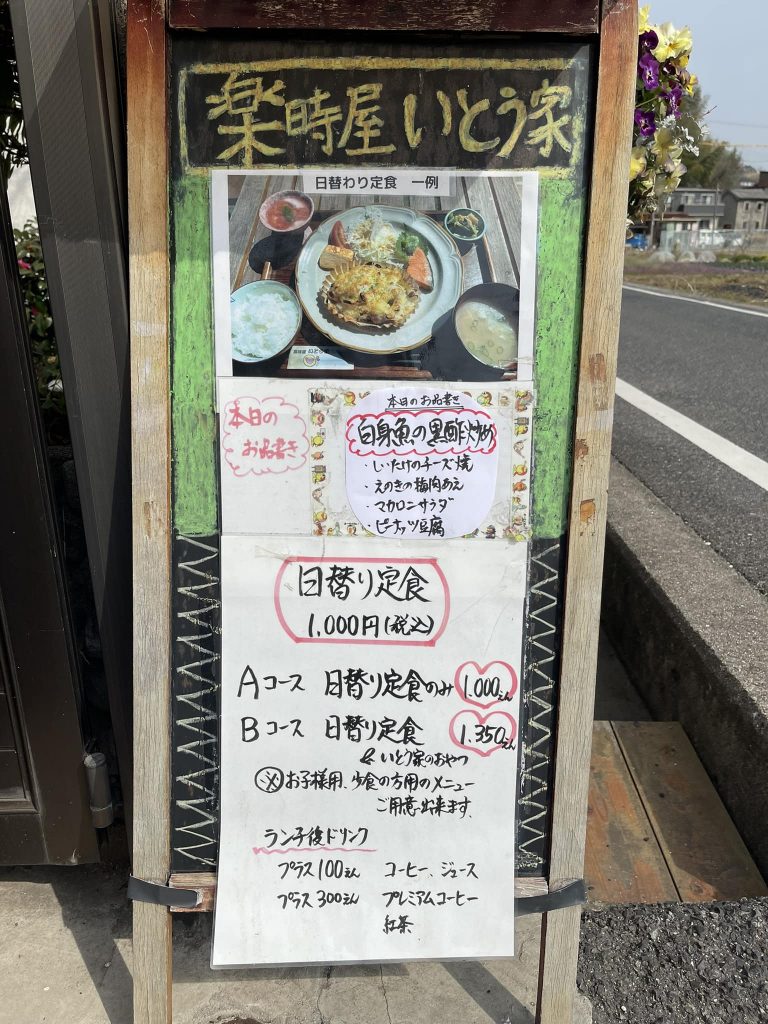 楽時屋 いとう家
日替わり定食 一例
本日の
お品書き
本日のお品書き
白身魚の黒酢炒め
・しいたけのチーズ焼
・えのきの梅肉あえ
・マカロニサラダ
・ピーナッツ豆腐
日替り定食
1,000円(税込)
Aコース 日替り定食のみ 1.000えん
Bコース 日替り定食 1.350えん
& いとう家のおやつ
※お子様用、少食の方用のメニュー
ご用意出来ます。
ランチ後ドリンク
プラス100えん コーヒー、ジュース
プラス300えん プレミアムコーヒー
紅茶